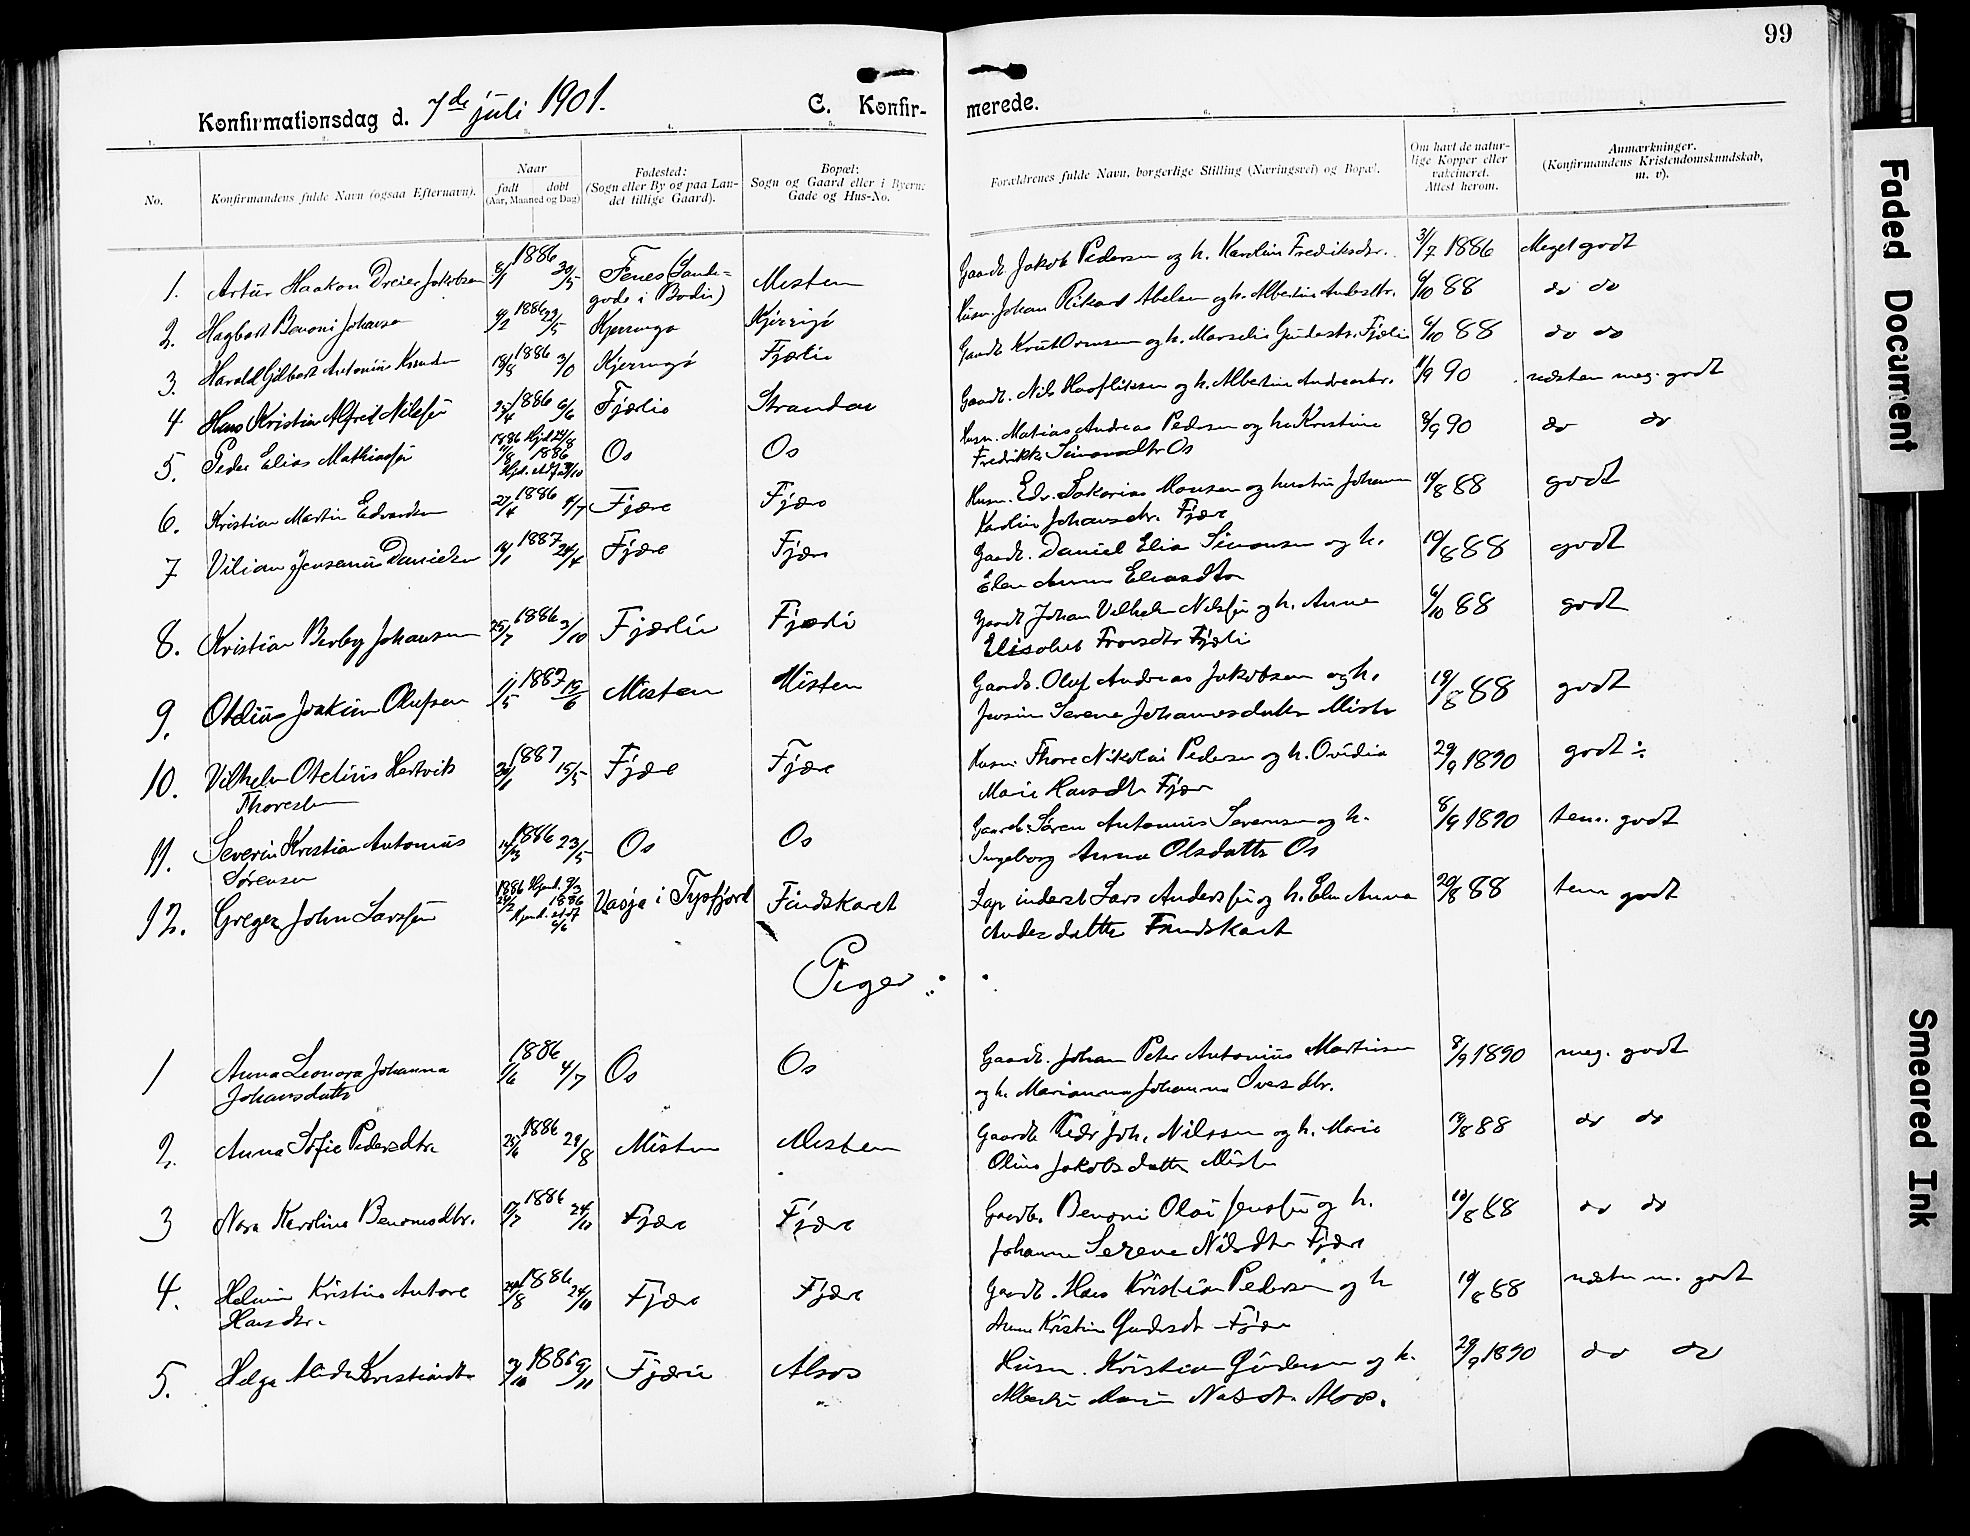 99
Konfirmationsdag d. 7de juli 1901.
C. Konfir-
merede.
1. 2. 3. 4. 5. 6. 7. 8.
No.
Konfirmandens fulde Navn (ogsaa Efternavn).
Naar
født døbt
(Aar, Maaned og Dag)
Fødested:
(Sogn eller By og paa Lan-
det tillige Gaard).
Bopæl:
Sogn og Gaard eller i Byern:
Gade og Hus-No.
Forældrenes fulde Navn, borgerlige Stilling (Næringsvei) og Bopæl.
Om havt de natur-
lige Kopper eller
vakcineret.
Attest herom.
Anmærkninger.
(Konfirmandens Kristendomskundskab,
m. v).
1. Artur Haakon Dreier Jakobsen 6/1 1886 30/5 Fenes (Lande- Misten Gaardb. Jakob Pedersen og h. Karolin Fredriksdtr. 31/7 1886 Meget godt
gode i Bodin)
2. Hagbart Benoni Johansen 4/2 1886 23/5 Kjerringø Kjerringø Husm. Johan Rikard Abelsen og h. Albertine Andersdtr. 6/10 88 do do
3. Harald Gilbert Antonius Knudsen 19/8 1886 3/10 Kjerringø Fjærlie Gaardb. Knut Ovensen og h. Marselie Gundersdtr. Fjærlie 6/10 88 do do
4 Hans Kristian Alfred Nilsen 25/4 1886 6/6 Fjærlie Strandaa Gaardb. Nils og h. Albertine Andreasdtr. 8/9 90 næsten meg. godt
5. Peder Elias Mathiassen 11/8 1886 Hjd. 24/8 1886 Os Os Husm. Matias Andreas Pedersen og h. Kristine 8/9 90 do do
Fredrikke Simonsdtr Os
6. Kristian Martin Edvardsen 27/4 1886 4/7 Fjære Fjære Husm. Edv. Sakarias Monsen og hustru Johanna 19/8 88 godt
Karolin Johansdtr. Fjære
7 Vilian Jensenius Danielsen 14/1 1887 24/4 Fjære Fjære Gaardb. Daniel Elia Simonsen og h. 19/8 88 godt
Elen Anna Eliasdtr
8. Kristian Berby Johansen 25/7 1886 3/10 Fjærlie Fjærli Gaardb Johan Vilhelm Nilsen og h. Anne 6/10 88 godt
Elisabet Fjærli
9. Otelius Joakim Olufsen 1/5 1887 19/6 Misten Misten Gaardb. Oluf Andreas Jakobsen og h. 19/8 88 godt
Serene Johannesdatter Misten
10. Vilhelm Otelius Hertvik 30/1 1887 15/5 Fjære Fjære Husm. Thore Nikolai Pedersen og h. Ovidia 29/9 1890 godt ÷
Thoresen Marie Hansdtr Fjære
11. Severin Kristian Antonius 14/3 1886 23/5 Os Os Gaardb. Søren Antonius Severinsen og h. 8/9 1890 tem. godt
Sørensen Ingeborg Anna Olsdatter Os
12. Greger John Larssen 24/2 1886 Hjmd. 9/3 1886 Vasja i Tysfjord Findskaret Lap inderst Lars Anderssen og h. Elen Anna 20/8 88 tem godt
Andersdatter Findskaret
Piger:
1 Anna Leonora Johanna 1/6 1886 4/7 Os Os Gaardb. Johan Peter Antonius Martinsen 8/9 1890 meg. godt
Johansdatter og h. Marianna Johanna Iversdtr.
2. Anna Sofie Pedersdtr. 25/6 1886 29/8 Misten Misten Gaardb Peder Joh. Nilssen og h. Marie 19/8 88 do do
Oline Jakobsdatter Misten
3 Nora Karoline Benonisdtr. 17/7 1886 24/10 Fjære Fjære Gaardb. Benoni Olai Jenssen og h. 19/8 88 do do
Johanna Serene Nilsdtr Fjære
4. Helmine Kristine Antore 29/8 1886 24/10 Fjære Fjære Gaardb. Hans Kristian Pedersen og h 19/8 88 næsten m. godt
Hansdtr. Anne Kristine Gundersdtr Fjære
5. Helga Alida Kristiansdtr 3/10 1886 9/11 Fjære Alsos Husm. Kristian Gundersen og h. 29/9 1890 do do
Albertine Marie Alsos.
Faded Document
Smeared Ink